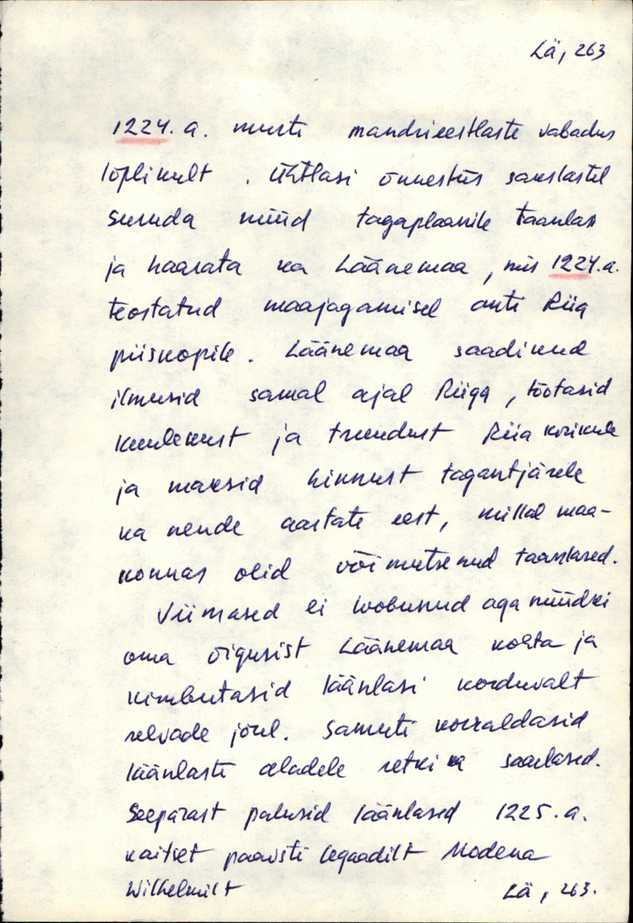 Lä, 263
1224. a. murti mandrieestlaste vabadus
lõplikult. Ühtlasi õnnestus sakslastel
suruda nüüd tagaplaanile taanlasi
ja haarata ka Läänemaa, mis 1224. a.
teostatud maajagamisel anti Riia
piiskopile. Läänemaa saadikud
ilmusid samal ajal Riiga, tõotasid
kuulekust ja truudust Riia kirikule
ja maksid hinnust tagantjärele
ka nende aastate eest, millal maa-
konnas olid võimutsenud taanlased.
Viimased ei loobunud aga nüüdki
oma õigusist Läänemaa kohta ja
kimbutasid läänlasi korduvalt
relvade jõul. Samuti korraldasid
läänlaste aladele retki ka saarlased.
Seepärast palusid läänlased 1225. a.
kaitset paavsti legaadilt Modena
Wilhelmilt Lä, 263.